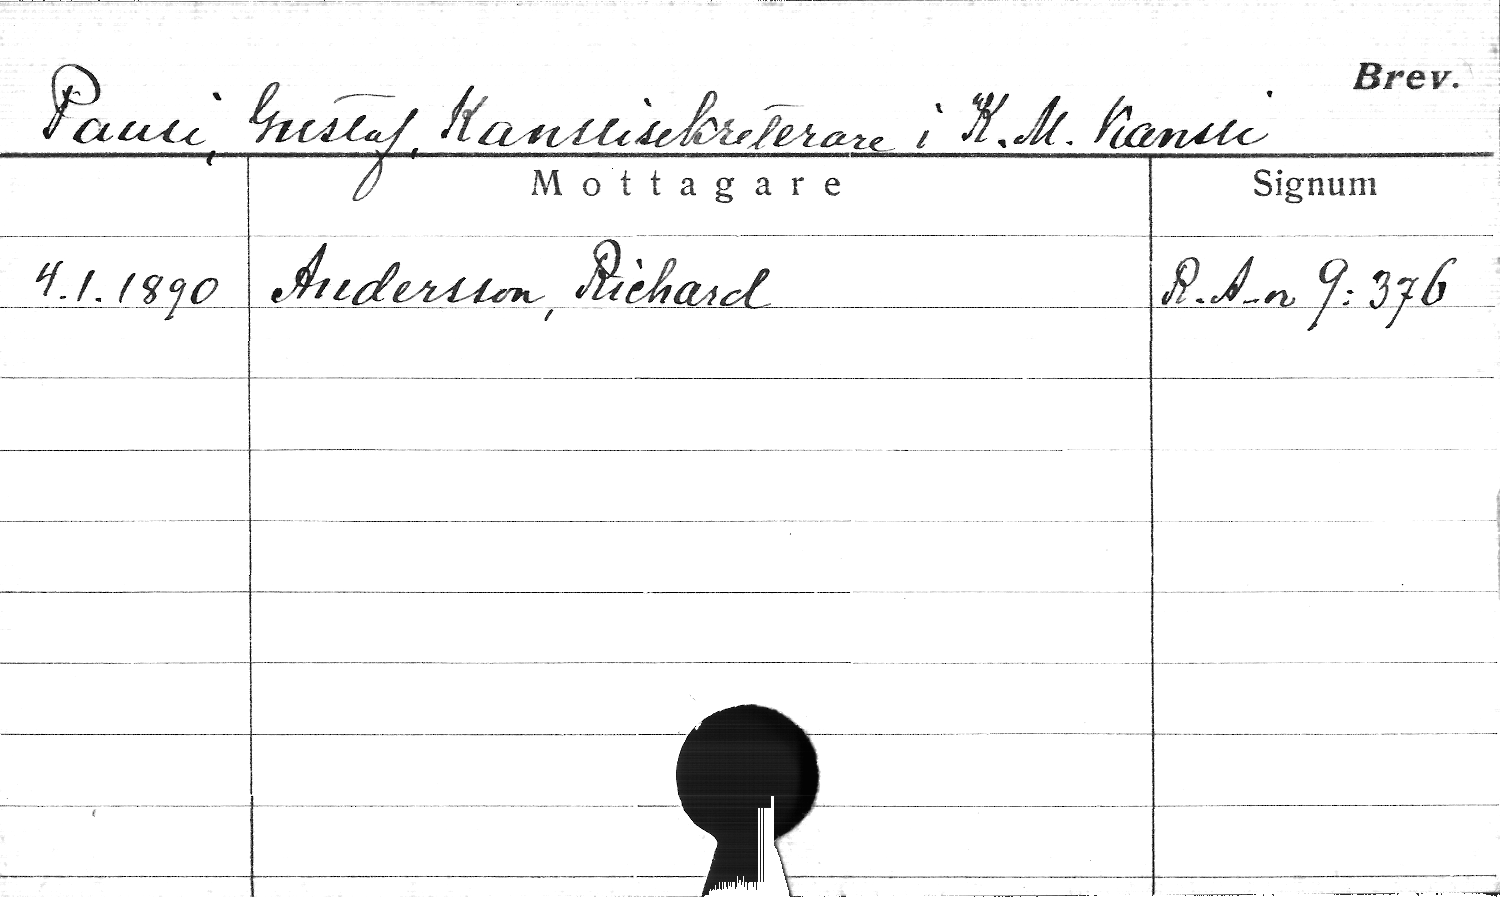 Brev.
Pauli, Gustaf, Kanslisekreterare i K. M. Kansli
Mottagare Signum
4.1.1890 Andersson, Richard R. A-n 9:376